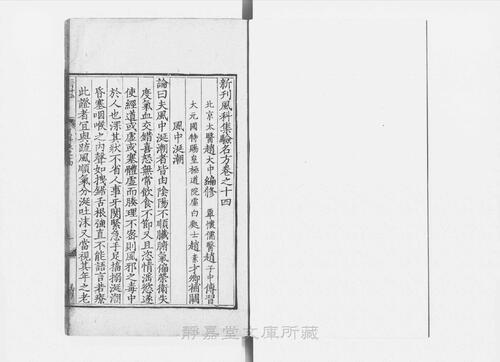 新刊風科集驗名方卷之十四
北京太醫趙大中編修　覃懷儒醫趙子中傳習
大元國特賜皇極道院虛白處士趙素才卿補闕
風中涎潮
論曰夫風中涎潮者皆由陰陽不順臟腑氣偏榮衛失
度氣血交錯喜怒無常飲食不節又且恣情滛慾遂
使經道或虛或塞體虛而腠理不密則風邪之毒中
於人也深其狀不省人事牙關緊急手足搐搦涎潮
昏塞咽喉之内聲如拽鋸舌根強直不能語言者療
此證者冝與䟽風順氣分涎吐沫又當視其年之老
靜嘉堂文庫所藏